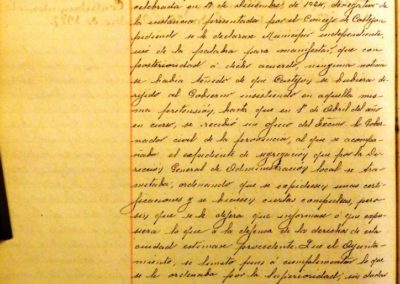 celebrada en 17 de Diciembre de 1920, denegatoria de
la instancia presentada por el Concejo de Castejon
pidiendo se le declarase Municipio independiente,
usó de la palabra para manifestar, que con
posterioridad á dicho acuerdo, ninguna noticia
se había tenido de que Castejon se hubiera di-
rigido al Gobierno insistiendo en aquella mis-
ma pretensión, hasta que en 1º de Abril del año
en curso, se recibió un oficio del Excmo. Sr. Gober-
nador civil de la provincia, al que se acompa-
ñaba el expediente de segregación que por la Di-
reccion General de Administración local se tra-
mitaba, ordenando que se expidiesen unas certi-
ficaciones y se hiciesen ciertas consultas, pero
sin que se le dijera que informase ó que expu-
siera lo que á la defensa de los derechos de esta
ciudad estimase procedente. Que el Ayunta-
miento, se limitó pues á cumplimentar lo que
se le ordenaba por la Superioridad, sin dudar